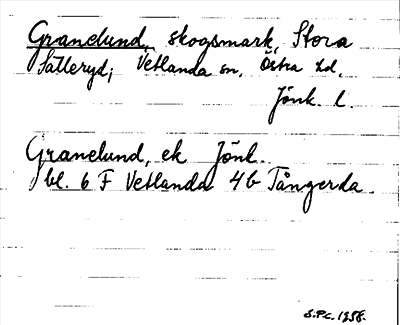 Granelund, skogsmark, Stora
Sälleryd; Vetlanda sn, Östra hd,
Jönk. l.
Granelund, ek Jönk.
bl. 6 F Vetlanda 4b Tångerda.
S.Pc. 1958.